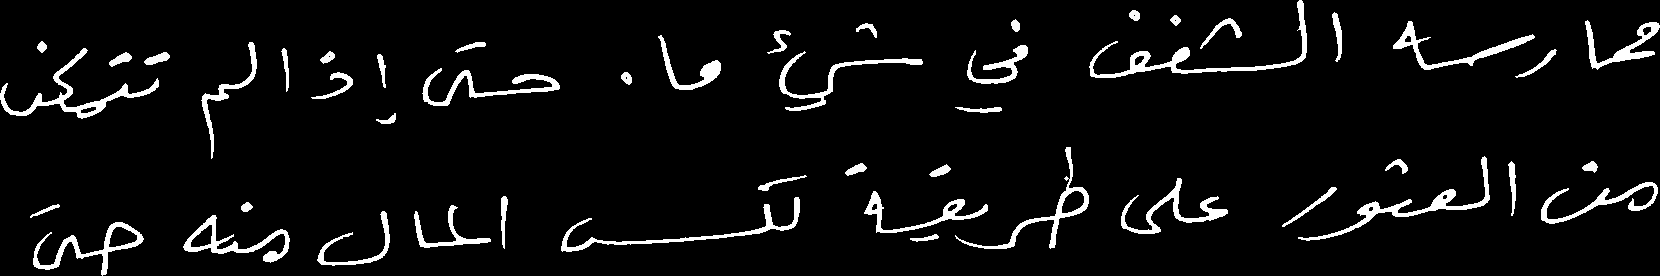 ممارسه الشغف في شئ ما. حتى إذا لم تتمكن
من العثور على طريقة لكسب المال منه حتى